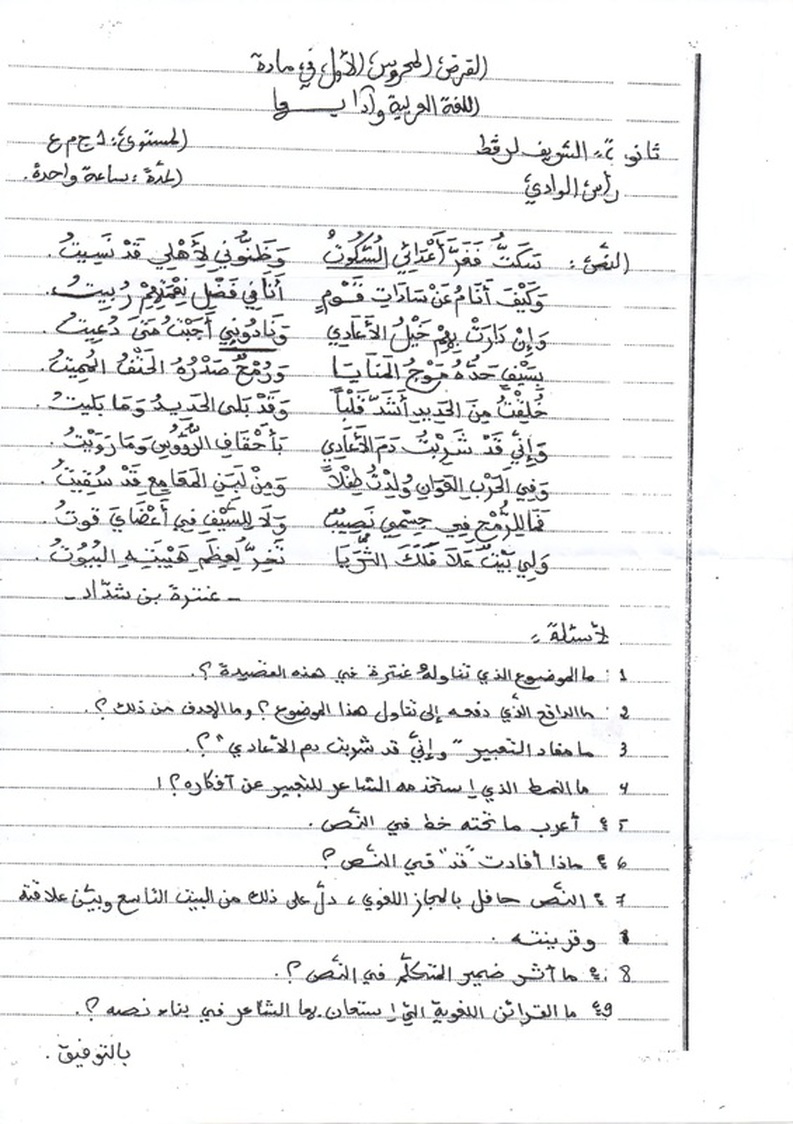 الفرض المحروس الأول في مادة
اللغة العربية وآدابها
ثانوية: الشريف لرقط المستوى: 1 ج م ع
رأس الوادي المدة: ساعة واحدة.
النص: سَكَتُّ فَغَرَّ أَعْدَائِي السُّكُوتُ وَظَنُّونِي لِأَهْلِي قَدْ نَسِيتُ.
وَكَيْفَ أَنَامُ عَنْ سَادَاتِ قَوْمٍ أَنَا فِي فَضْلِ نِعْمَتِهِمْ رُبِيتُ.
وَإِنْ دَارَتْ بِهِمْ خَيْلُ الأَعَادِي وَنَادُونِي أَجَبْتُ مَتَى دُعِيتُ.
بِسَيْفٍ حَدُّهُ مَوْجُ المَنَايَا وَرُمْحٌ صَدْرُهُ الحَتْفُ المُمِيتُ.
خُلِقْتُ مِنَ الحَدِيدِ أَشَدَّ قَلْباً وَقَدْ بَلَى الحَدِيدُ وَمَا بَلِيتُ.
وَإِنِّي قَدْ شَرِبْتُ دَمَ الأَعَادِي بِأَحْقَافِ الرُّؤُوسِ وَمَا رَوَيْتُ.
وَفِي الحَرْبِ العَوَانِ وُلِدْتُ طِفْلاً وَمِنْ لَبَنِ المَعَامِعِ قَدْ سُقِيتُ.
فَمَا لِلرُّمْحِ فِي جِسْمِي نَصِيبٌ وَلَا لِلسَّيْفِ فِي أَعْضَايَ قُوتُ.
وَلِي بَيْتٌ عَلَا فَلَكَ الثُّرَيَا تَخِرُّ لِعِظَمِ هَيْبَتِهِ البُيُوتُ.
- عنترة بن شدّاد -
لأسئلة:
1: ما الموضوع الذي تناوله عنترة في هذه القصيدة؟.
2: ما الدافع الذّي دفعه إلى تناول هذا الموضوع؟ وما الهدف من ذلك؟.
3 ما مفاد التعبير "وإنّي قد شربت دم الأعادي"؟.
4 ما النمط الذي إستخدمه الشاعر للتعبير عن أفكاره؟!
5: أعرب ما تحته خط في النّص.
6: ماذا أفادت "قد" في النّص؟
7: النّص حافل بالمجاز اللغوي، دلّ على ذلك من البيت التاسع وبيّن علاقته
وقرينته.
8: ما أثر ضمير المتكلّم في النّص؟.
9: ما القرائن اللغوية التي إستعان بها الشاعر في بناء نصه؟.
بالتوفيق.